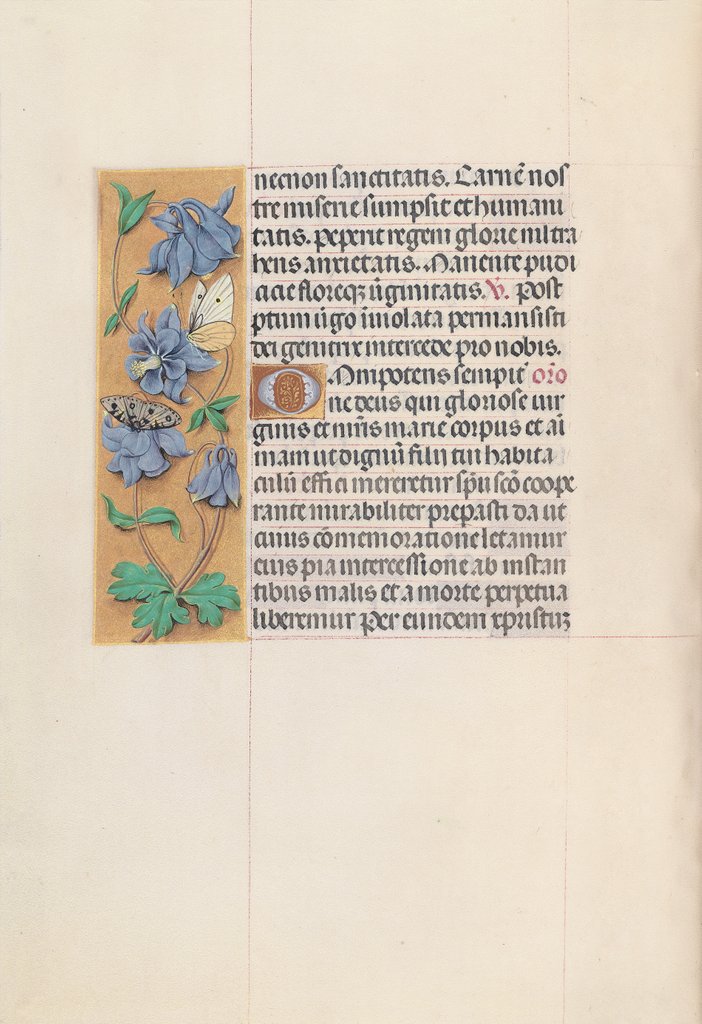 necnon sanctitatis. Carnē nos
tre miserie sumpsit et humani
tatis. peperit regem glorie nil tra
hens anxietatis. Manente pudi
cicie floreq; v̄ginitatis. V̄. Post
ptum v̄go īuiolata permansisti
dei genitrix intercede pro nobis.
Omnipotens sempit̄ orō
ne deus qui gloriose uir
ginis et mr̄is marie corpus et ai
mam ut dignū filij tui habita
culū effici mereretur sp̄u scō coope
rante mirabiliter prepasti da ut
cuius cōmemoratione letamur
eius pia intercessione ab instan
tibus malis et a morte perpetua
liberemur Per eundem xpristuȝ